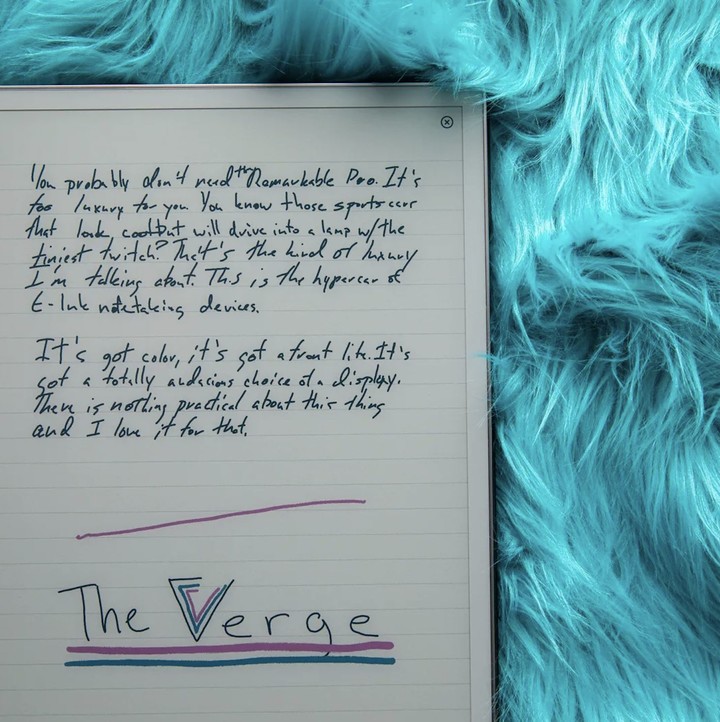 You probably don't need the Remarkable Pro. It's
too luxury for you You know those sports cars
that look cool but will drive into a lamp w/the
tiniest twitch? That's the kind of luxury
I'm talking about. This is the hypercar of
E-Ink notetaking devices.
It's got color, it's got a front lite. It's
got a totally audacious choice of a display.
There is nothing practical about this thing
and I love it for that.
The Verge